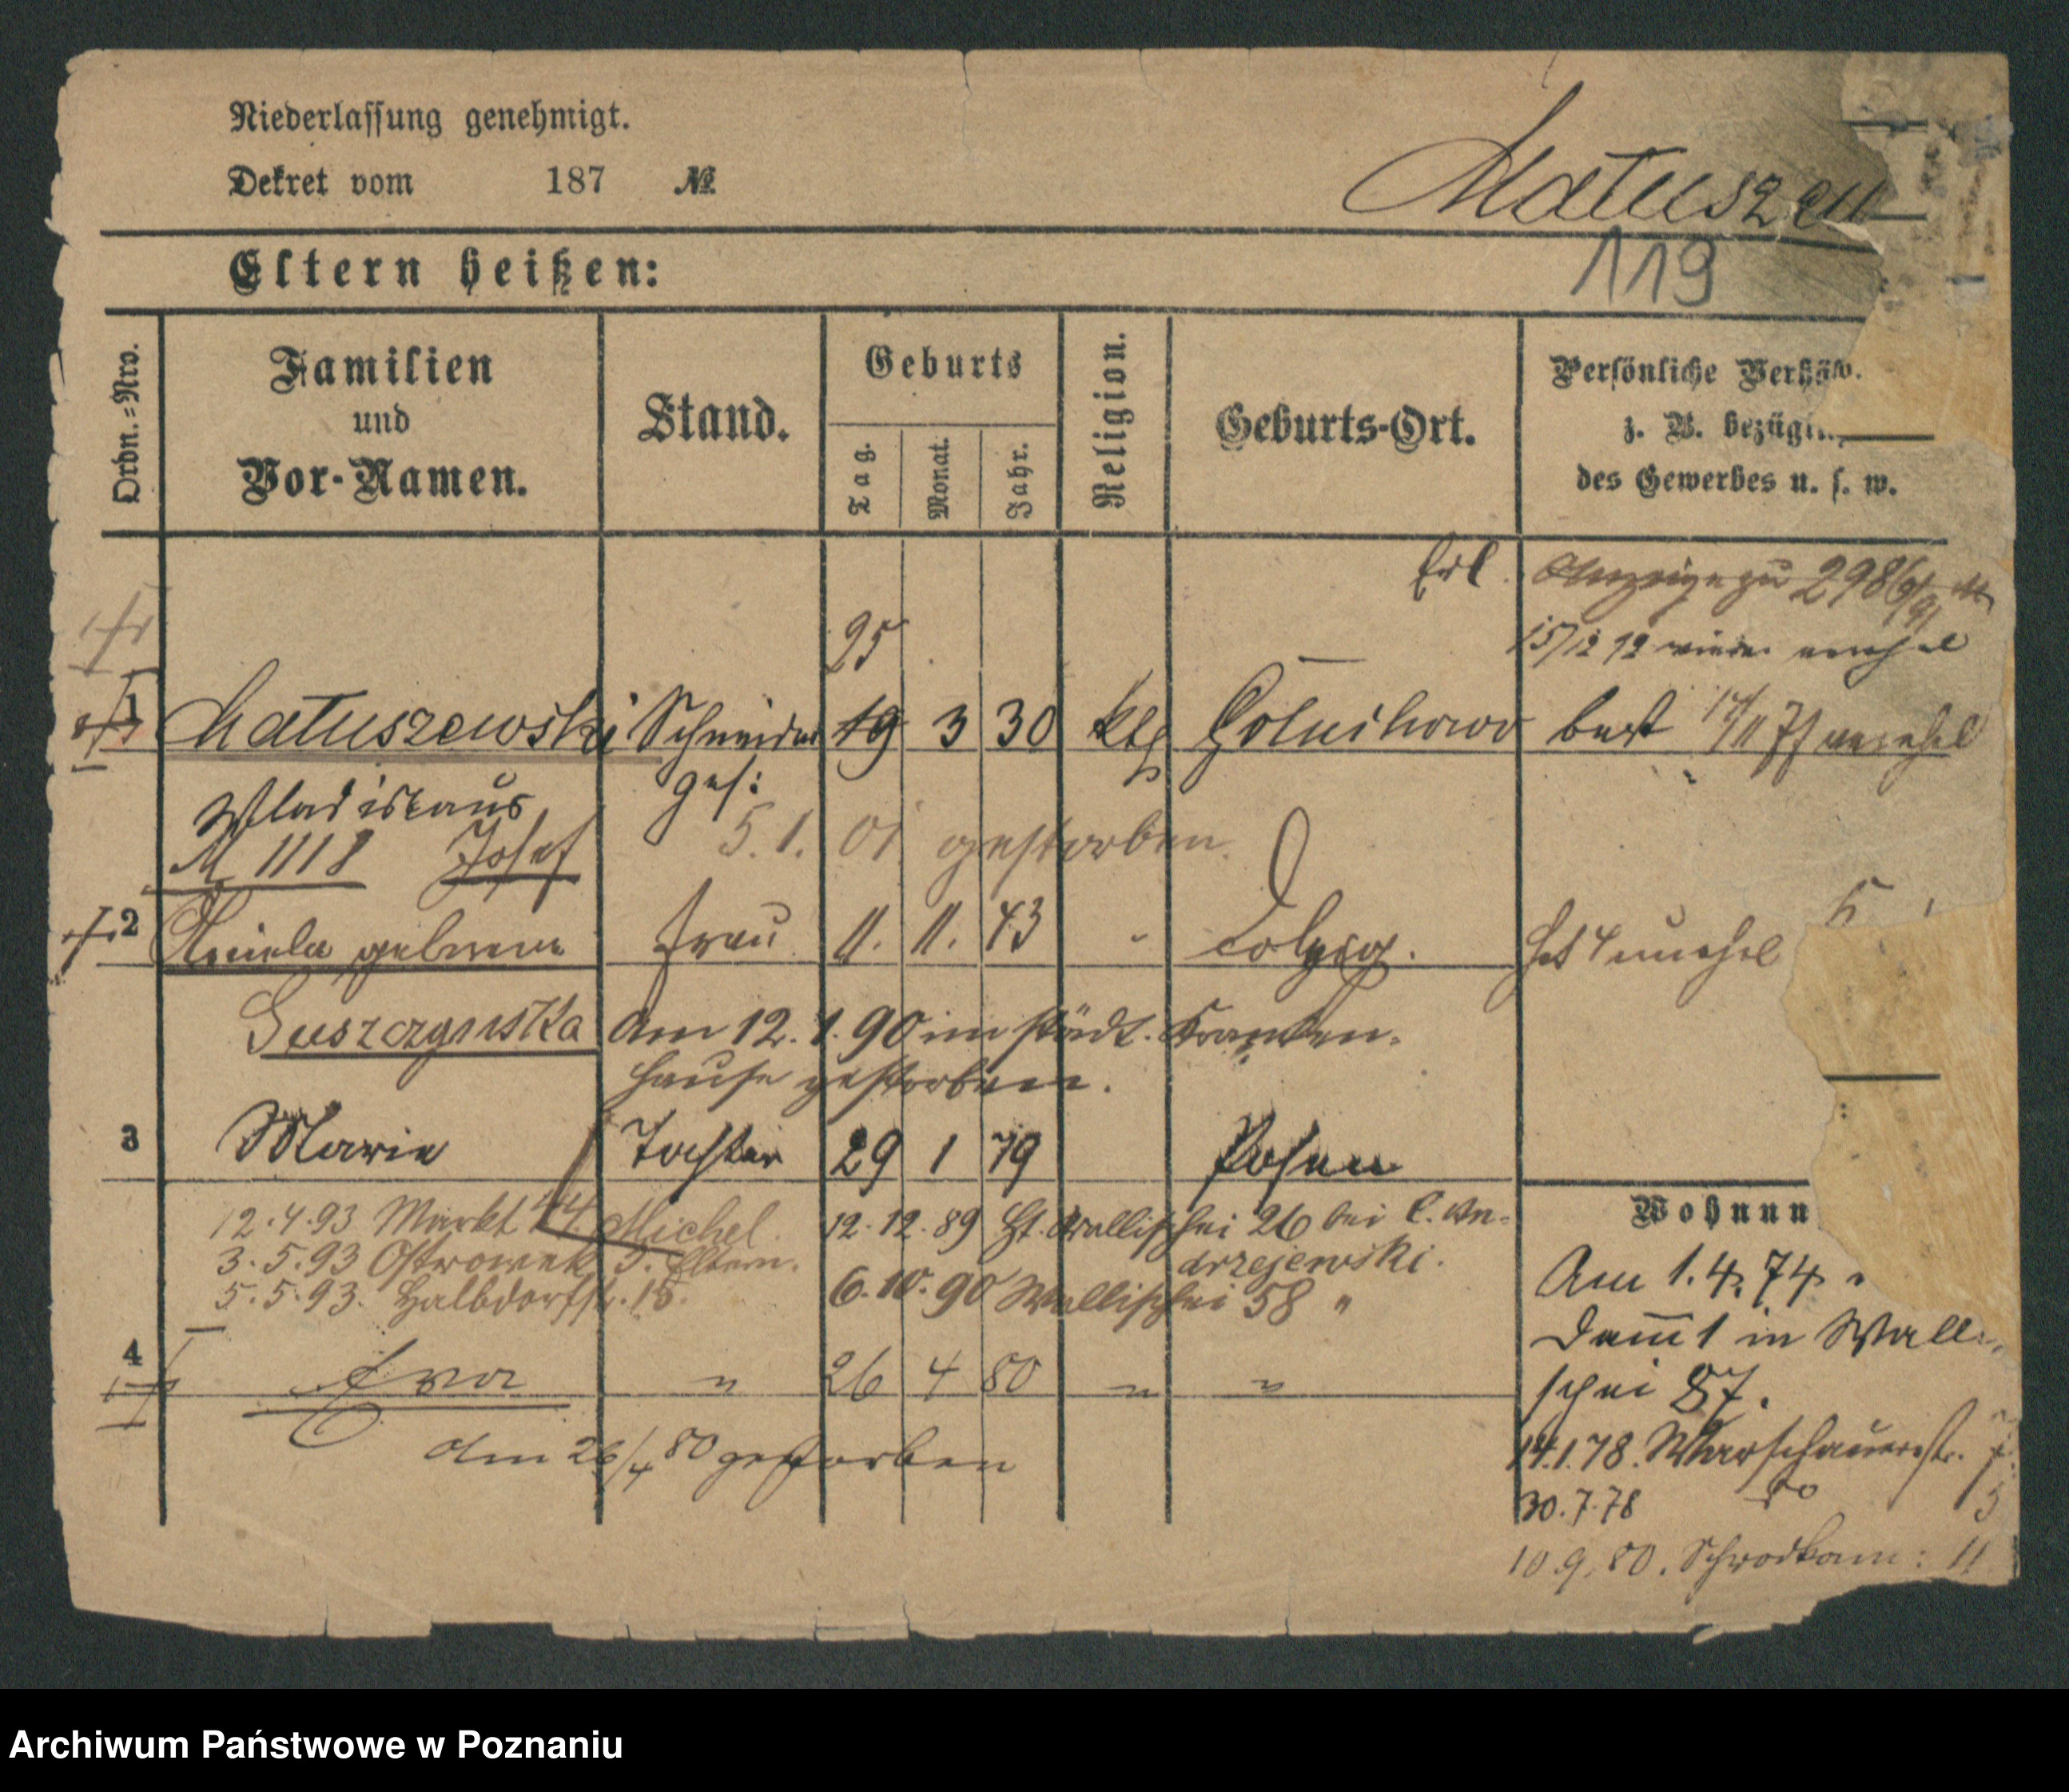 Niederlassung genehmigt.
Dekret vom 187 №
Matuszew
119
Eltern heißen:
Ordn.=Nro.
Familien
und
Vor-Namen.
Stand.
Geburts
Tag.
Monat.
Jahr.
Religion.
Geburts-Ort.
Persönliche
z. B.
des Gewerbes u. s. w.
Erl. Anzeige zu
15/12 12
25
1 Matuszewski Schneider 19 3 30 kth
Wladislaus ges:
M 1118 Josef 5.1.01 gestorben
2 Aniela geborene Frau 11. 11. 43 " Dolzig.
Am 12.1.90 im städt. Kranken-
hause gestorben.
3 Marie Tochter 29 1 79 Posen
12.4.93 Markt 44 Michel. 12.12.89 Ht. Wallischei 26 bei C. An-
drzejewski.
3.5.93 Ostrowek 3. Eltern.
5.5.93. Halbdorfstr. 15. 6.10.90 Wallischei 58 "
4 Eva " 26 4 80 " "
Am 26/4 80 gestorben
Wohnun
Am 1.4.74
Damm 1 in Walli
schei 87.
14.1.78. Warschauerstr.
30.7.78 do 5
10.9.80. Schrodkam: 11
Archiwum Państwowe w Poznaniu